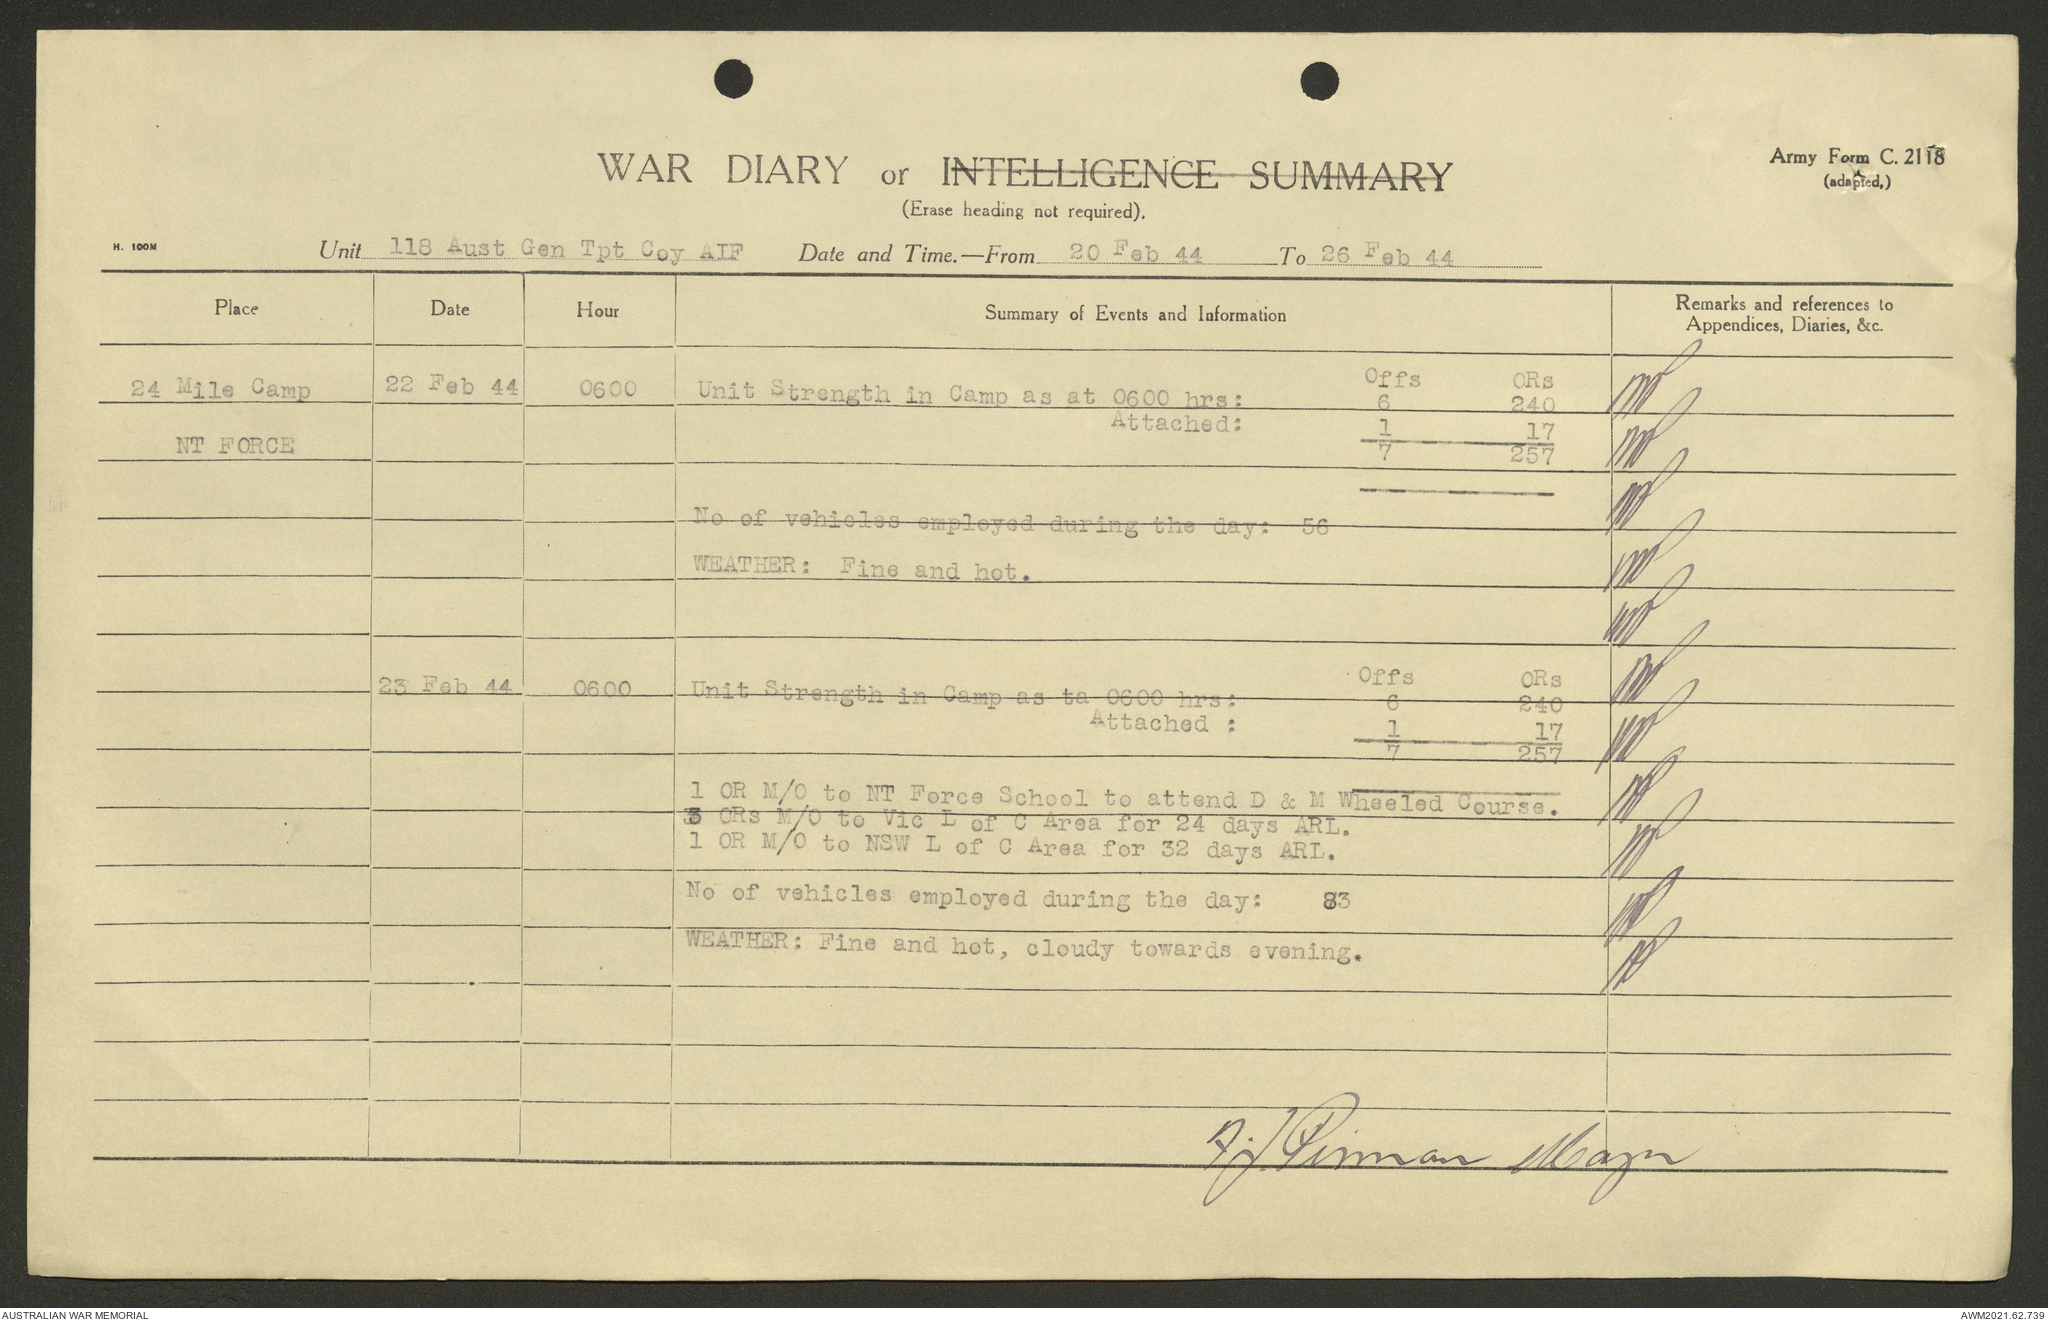 WAR DIARY or INTELLIGENCE SUMMARY
(Erase heading not required).
Army Form C. 2118
(adapted.)
H. 100M
Unit 118 Aust Gen Tpt Coy AIF Date and Time.—From 20 Feb 44 To 26 Feb 44
Place Date Hour Summary of Events and Information Remarks and references to
Appendices, Diaries, &c.
Offs ORs
24 Mile Camp 22 Feb 44 0600 Unit Strength in Camp as at 0600 hrs: 6 240
Attached: 1 17
NT FORCE 7 257
No of vehicles employed during the day: 56
WEATHER: Fine and hot.
Offs ORs
23 Feb 44 0600 Unit Strength in Camp as ta 0600 hrs: 6 240
Attached : 1 17
7 257
1 OR M/O to NT Force School to attend D & M Wheeled Course.
3 ORs M/O to Vic L of C Area for 24 days ARL.
1 OR M/O to NSW L of C Area for 32 days ARL.
No of vehicles employed during the day: 83
WEATHER: Fine and hot, cloudy towards evening.
Major
AUSTRALIAN WAR MEMORIAL
AWM2021.62.739